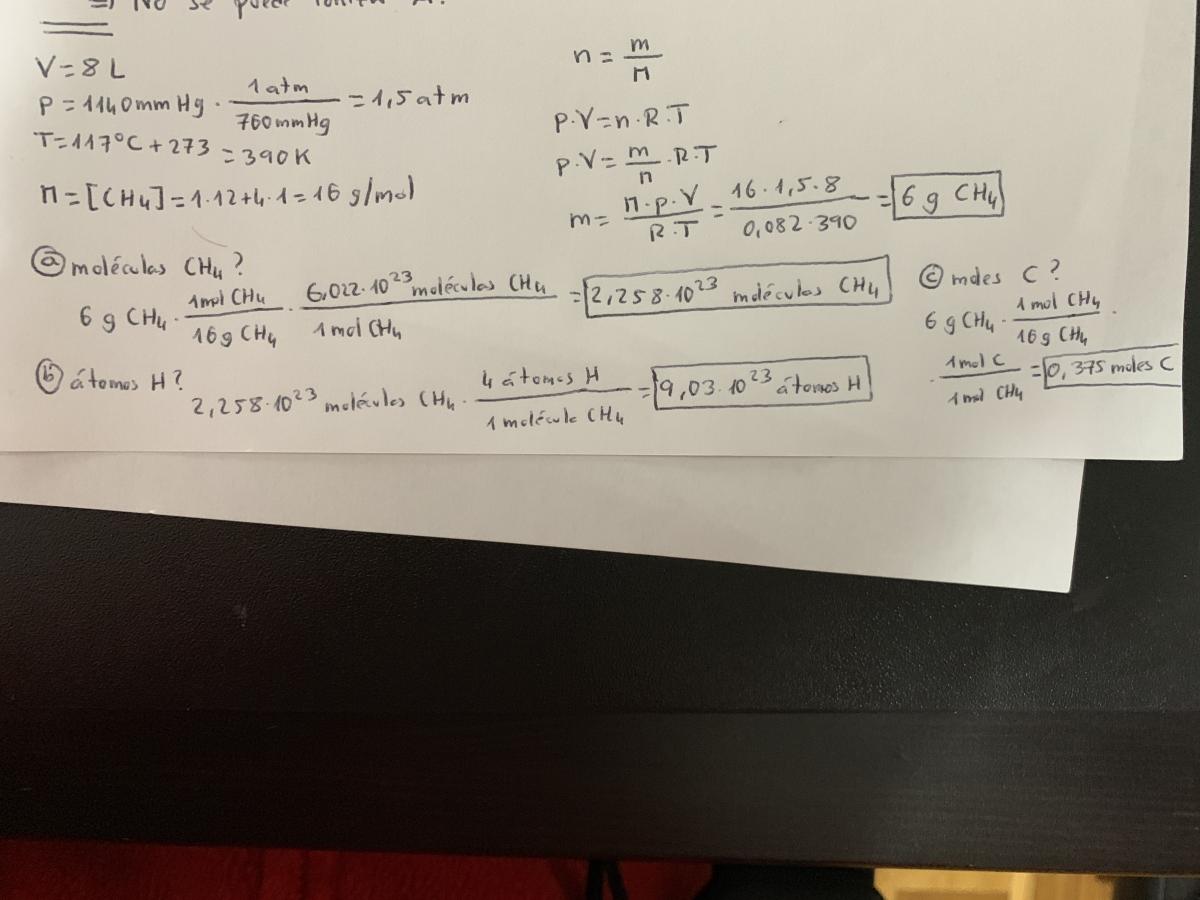 =) No se puede
V=8 L
P=1140mmHg · 1atm / 760mmHg = 1,5 atm
T=117°C+273 = 390K
M=[CH₄]=1·12+4·1=16 g/mol
n = m / M
p·V=n·R·T
p·V= m / M · R·T
m= M·p·V / R·T = 16·1,5·8 / 0,082·390 = 6 g CH₄
a) moléculas CH₄?
6 g CH₄ · 1mol CH₄ / 16g CH₄ · 6,022·10²³ moléculas CH₄ / 1 mol CH₄ = 2,258·10²³ moléculas CH₄
b) átomos H?
2,258·10²³ moléculas CH₄ · 4 átomos H / 1 molécula CH₄ = 9,03·10²³ átomos H
c) moles C?
6 g CH₄ · 1 mol CH₄ / 16g CH₄ ·
· 1mol C / 1mol CH₄ = 0,375 moles C